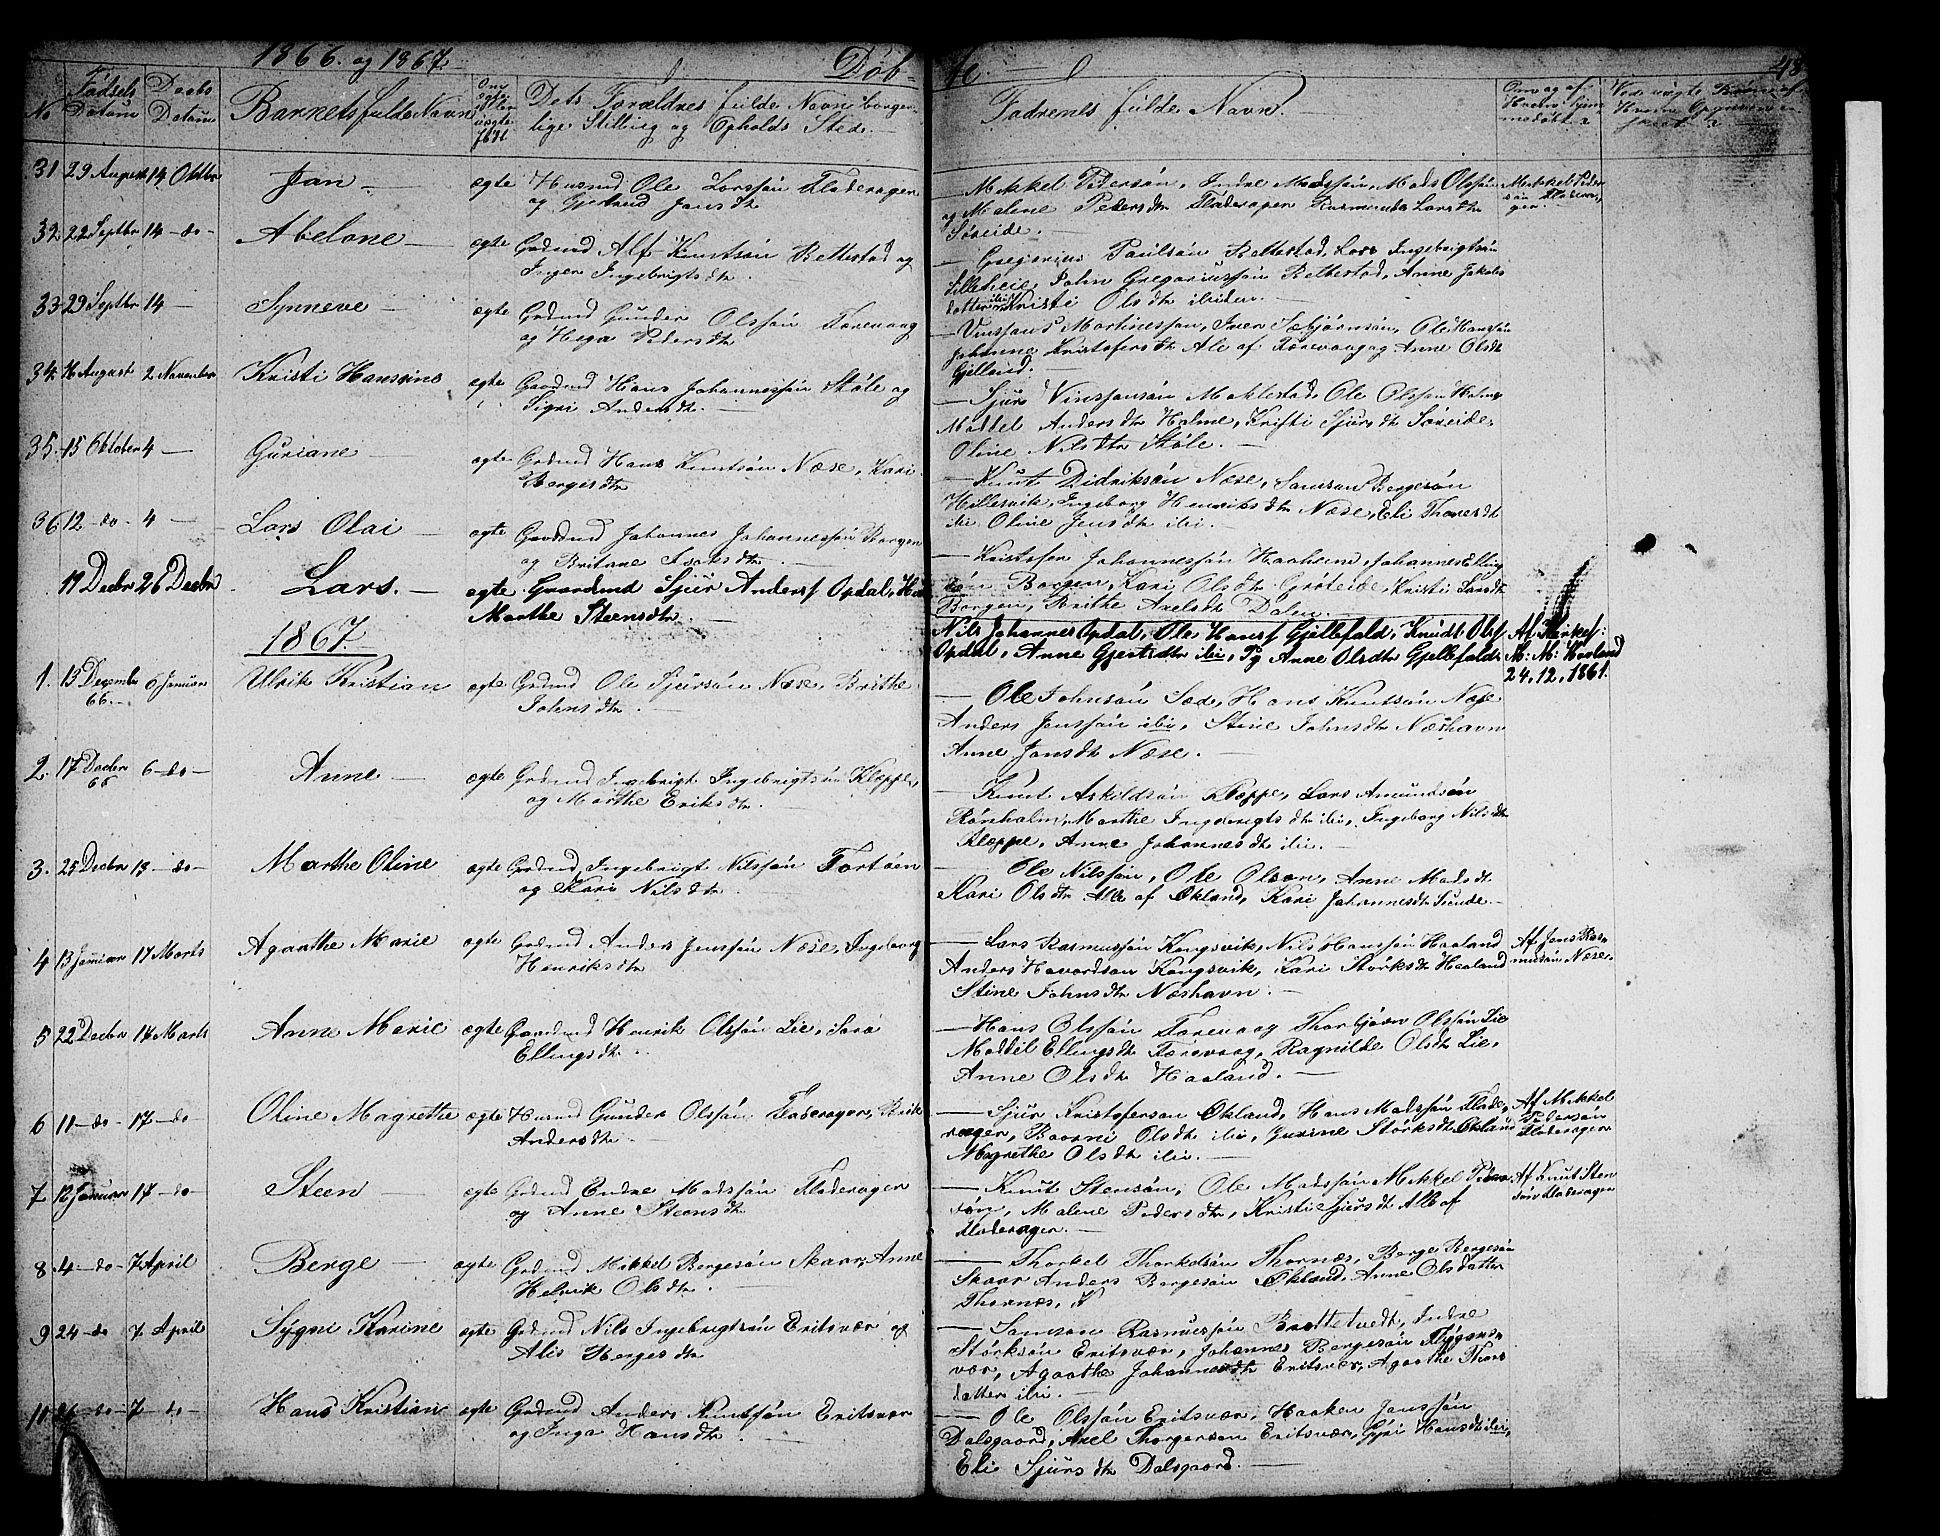 1866. og 1867.
Döb-
te.
48
No
Fødsels
Datum
Daabs
Datum
Barnets fulde Navn
Dets Forældres fulde Navn borger-
lige Stilling og Opholds Sted.
Fadrenes fulde Navn.
31 29 August 14 Oktbr Jan — ægte Husmd Ole Larssøn Fladerager
og Gjertrud Jansdtr
— Mikkel Pedersøn, Endre Madssøn, Mads Olssøn
og Malene Pedersdtr Fladerager Rasmunda Larsdtr
Søreide. —
Mikkel Peder-
søn Fladera-
ger.
32 22 Septbr 14 - do - Abelone — ægte Grdmd Alf Knutsøn Bettestad og
Inger Ingebrigtsdtr
— Gregorius Paulsøn Bettestad, Lars Ingebrigtsøn
Lilleheie, John Gregoriussøn Bettestad, Anne Jakobs
datter ibid Kristi Olsdtr ibiden. —
33 29 Septbr 14 — Synneve — ægte Grdmd Gunder Olssøn Færevaag
og Helga Pedersdtr
— Vinsjans Martinessøn, Iver Sæbjørnsøn, Ole Hanssøn
Johanne Kristofersdtr Ale af Færevaag og Anne Olsdtr
Gjelland. —
34. 16 August 2 November Kristi Hansine ægte Gaardmd Hans Johannessøn Støle og
Sigri Andersdtr. —
— Sjurs Vinsjansøn Maklestad, Ole Olssøn Halme
Mattel Andersdtr Halme, Kristi Sjursdtr Søreide,
Oline Nilsdtr Støle. —
35. 15 Oktober 4 — Guriane — ægte Grdmd Hans Knutsøn Næse, Kari
Bergesdtr
— Knut Didriksøn Næse, Samson Bergesøn
Hillesvik, Ingeborg Henriksdtr Næse, Eli Thoresdtr
ibi Oline Jensdtr ibi. —
36. 12 - do - 4 — Lars Olai — ægte Gaardmd Johannes Johannessøn Borgen
og Britane Isaksdtr
— Kristofer Johannessøn Haaheim, Johannes Elling
søn Borgen, Kari Olsdtr Grøteide, Kristi Larsdtr
Borgen, Brithe Axelsdtr Dalen.
17 Decbr 26 Decbr Lars. — ægte Gaardmd Sjur Anderss Opdal,
Marthe Steensdtr.
Nils Johannes Opdal, Ole Hanss Gjellefald, Knudt Olss
Opdal, Anne Gjertsdtr ibi, og Anne Olsdtr Gjellefald.
Af Kirkes:
M: M: Haaland
24, 12, 1861.
1867.
1. 15 Decembr
66. — 6 Januar Ulrik Kristian ægte Grdmd Ole Sjursøn Næse, Brithe
Johnsdtr. —
— Ole Johnsøn Sæd, Hans Knutsøn Næse
Anders Jenssøn ibi, Stine Johnsdtr Næshavn
Anne Jonsdtr Næse. —
2. 17 Decbr
66 6 - do - Anne — ægte Grdmd Ingebrigt Ingebrigtsøn Kleppe,
og Marthe Eriksdtr. —
— Knut Askildsøn Kleppe, Lars Amundsøn
Røreholm, Marthe Ingebrigtsdtr ibi, Ingeborg Nilsdtr
Kleppe, Anne Johannesdtr ibi. —
3. 25 Decbr 13 - do - Marthe Oline ægte Grdmd Ingebrigt Nilssøn Fortøen
og Kari Nilsdtr. —
— Ole Nilssøn, Ole Olsøn, Anne Madsdtr
Kari Olsdtr Alle af Økland, Kari Johannesdtr Sunde. —
4 13 Januar 17 Marts Agaathe Marie ægte Grdmd Anders Jenssøn Næse, Ingeborg
Henriksdtr
— Lars Rasmussøn Kongsvik, Nils Hanssøn Haaland
Anders Havordsøn Kongsvik, Kari Størksdtr Haaland
Stine Johnsdtr Næshavn. —
Af Jens Ras-
musøn Næse.
5 22 Decbr 18 Marts Anne Marie ægte Gaardmd Henrik Olssøn Lie, Sara
Ellingsdtr.
— Hans Olssøn Færevaag Thorbjøern Olssøn Lie
Mattel Ellingsdtr Færevaag, Ragnilde Olsdtr Lie,
Anne Olsdtr Haaland. —
6 11 - do - 17 - do Oline Magrethe ægte Husmd Gunder Olssøn Fladerager, Brite
Andersdtr. —
— Sjur Kristofersøn Økland, Hans Madssøn Flade-
rager, Baarni Olsdtr ibi, Gurine Størksdtr Økland
Magrethe Olsdtr ibi. —
Af Mikkel
Pedersøn
Fladerager
7 12 Januar 17 - do Steen — ægte Grdmd Endre Madssøn Fladerager
og Anne Steensdtr
— Knut Stensøn, Ole Madssøn Mikkel Peder-
søn, Malene Pedersdtr, Kristi Sjursdtr Alle af
Fladerager. —
Af Knut Sten
søn Fladerager
8 4 - do 7 April Berge — ægte Grdmd Mikkel Bergesøn Skaar, Anne
Helvik Olsdtr. —
— Thorkel Thorkelsøn Thornæs, Berge Bergesøn
Skaar Anders Bergesøn Økland, Anne Olsdatter
Thornæs,
9 24 - do 7 April Sygni Karine ægte Grdmd Nils Ingebrigtsøn Eritsvær og
Alis Bergesdtr
— Samson Rasmussøn Brattetvedt, Endre
Størksøn Eritsvær, Johannes Bergesøn Flygans-
vær, Agaathe Johannesdtr Eritsvær, Agaathe Thors
datter ibi. —
10 26 - do - 7 do - Hans Kristian ægte Grdmd Anders Knutsøn Eritsvær
og Inga Hansdtr. —
— Ole Olssøn Eritsvær, Haaken Janssøn
Dalsgaard, Axel Thorgersøn Eritsvær, Gjøi Hansdtr ibi,
Eli Sjursdtr Dalsgaard. —